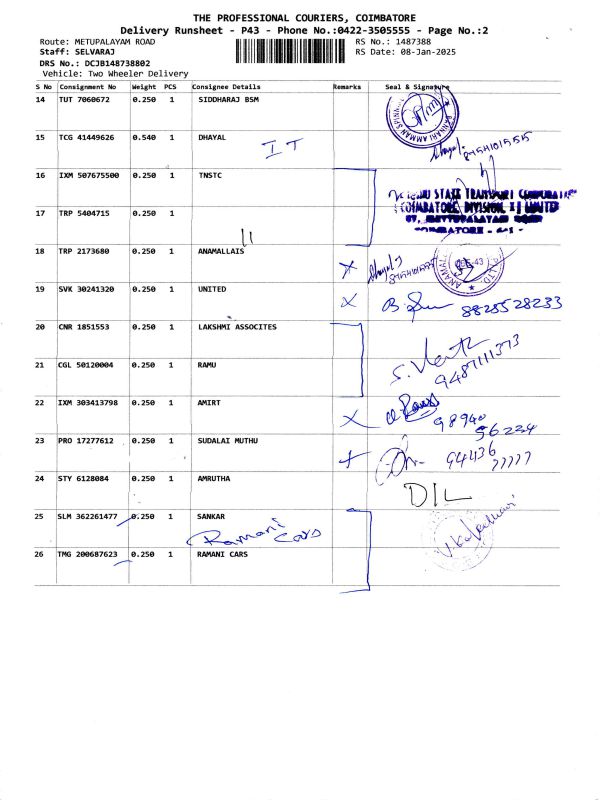 THE PROFESSIONAL COURIERS, COIMBATORE
Delivery Runsheet - P43 - Phone No.:0422-3505555 - Page No.:2
Route: METUPALAYAM ROAD RS No.: 1487388
Staff: SELVARAJ RS Date: 08-Jan-2025
DRS No.: DCJB148738802
Vehicle: Two Wheeler Delivery
S No Consignment No Weight PCS Consignee Details Remarks Seal & Signature
14 TUT 7060672 0.250 1 SIDDHARAJ BSM
15 TCG 41449626 0.540 1 DHAYAL
IT
16 IXM 507675500 0.250 1 TNSTC
STATE TRANSPORT
COIMBATORE, DIVISION, II LIMITED
17 TRP 5404715 0.250 1
18 TRP 2173680 0.250 1 ANAMALLAIS X
19 SVK 30241320 0.250 1 UNITED X 8828528233
20 CNR 1851553 0.250 1 LAKSHMI ASSOCITES
21 CGL 50120004 0.250 1 RAMU 9487111373
22 IXM 303413798 0.250 1 AMIRT X 98940
56224
23 PRO 17277612 0.250 1 SUDALAI MUTHU X 94436
77777
24 STY 6128084 0.250 1 AMRUTHA DIL
25 SLM 362261477 0.250 1 SANKAR
Ramani Cars
26 TMG 200687623 0.250 1 RAMANI CARS